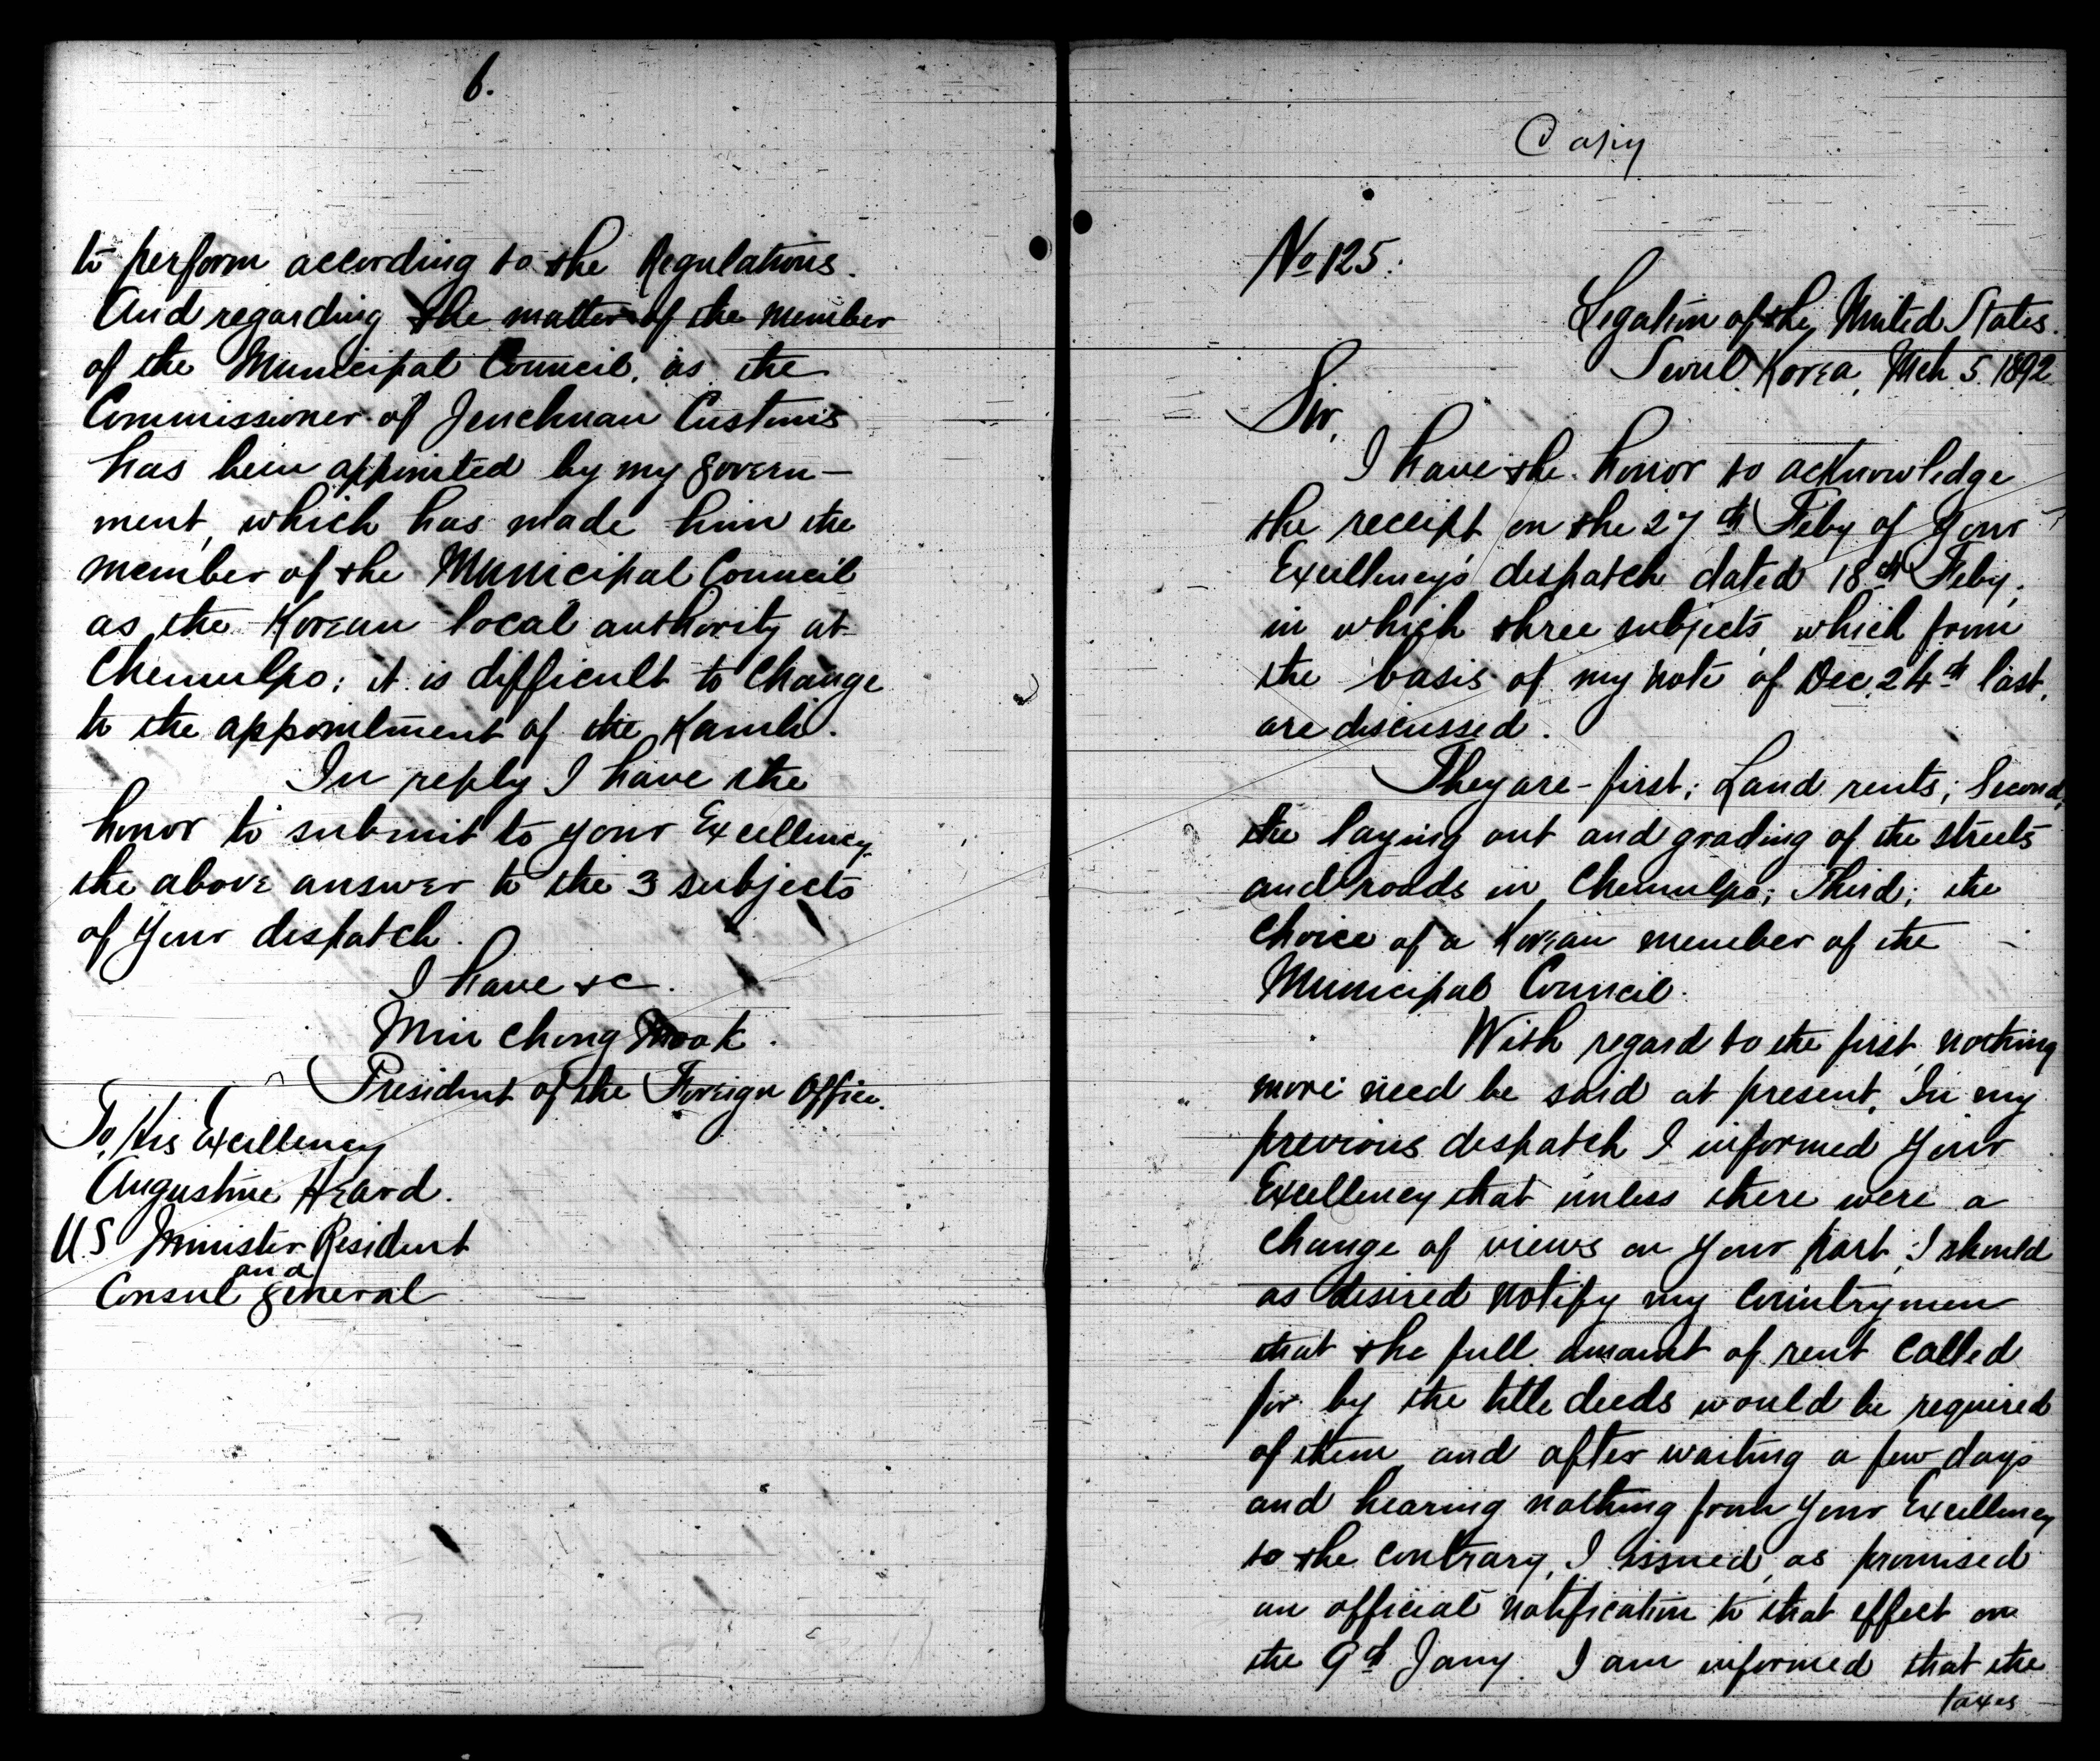 6.
to perform according to the Regulations.
And regarding the matter of the member
of the Municipal Council, as the
Commissioner of Jenchuan Customs
has been appointed by my govern-
ment, which has made him the
member of the Municipal Council
as the Korean local authority at
Chemulpo; it is difficult to change
to the appointment of the Kamli.
In reply I have the
honor to submit to your Excellency
the above answer to the 3 subjects
of your dispatch.
I have &c.
Min Chong Mook.
President of the Foreign Office.
To, His Excellency
Augustine Heard.
U.S Minister Resident
and
Consul general
Copy
No 125.
Legation of the United States.
Seoul Korea, Mch 5. 1892
Sir,
I have the honor to acknowledge
the receipt on the 27th Feby of Your
Excellency's despatch dated 18th Feby,
in which three subjects, which form
the basis of my note of Dec. 24th last,
are discussed.
They are - first; Land rents; Second;
the laying out and grading of the streets
and roads in Chemulpo; Third; the
choice of a Korean member of the
Municipal Council.
With regard to the first, nothing
more need be said at present. In my
previous despatch I informed Your
Excellency that unless there were a
change of views on your part, I should
as desired notify my Countrymen
that the full amount of rent called
for by the title deeds would be required
of them and after waiting a few days
and hearing nothing from Your Excellency
to the contrary, I issued, as promised
an official notification to that effect on
the 9th Jany. I am informed that the
taxes